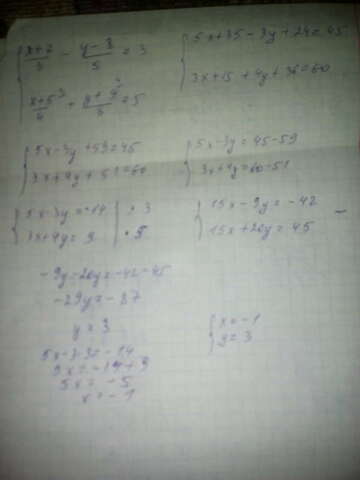 { (x+7)/3 - (y-8)/5 = 3
(x+5)/4 + (y+9)/3 = 5
{ 5x+35-3y+24=45
3x+15+4y+36=60
{ 5x-3y+59=45
3x+4y+51=60
{ 5x-3y=45-59
3x+4y=60-51
{ 5x-3y=-14 | ·3
3x+4y=9 | ·5
{ 15x-9y=-42
15x+20y=45
-
-9y-20y=-42-45
-29y=-87
y=3
5x-3·3=-14
5x=-14+9
5x=-5
x=-1
{ x=-1
y=3